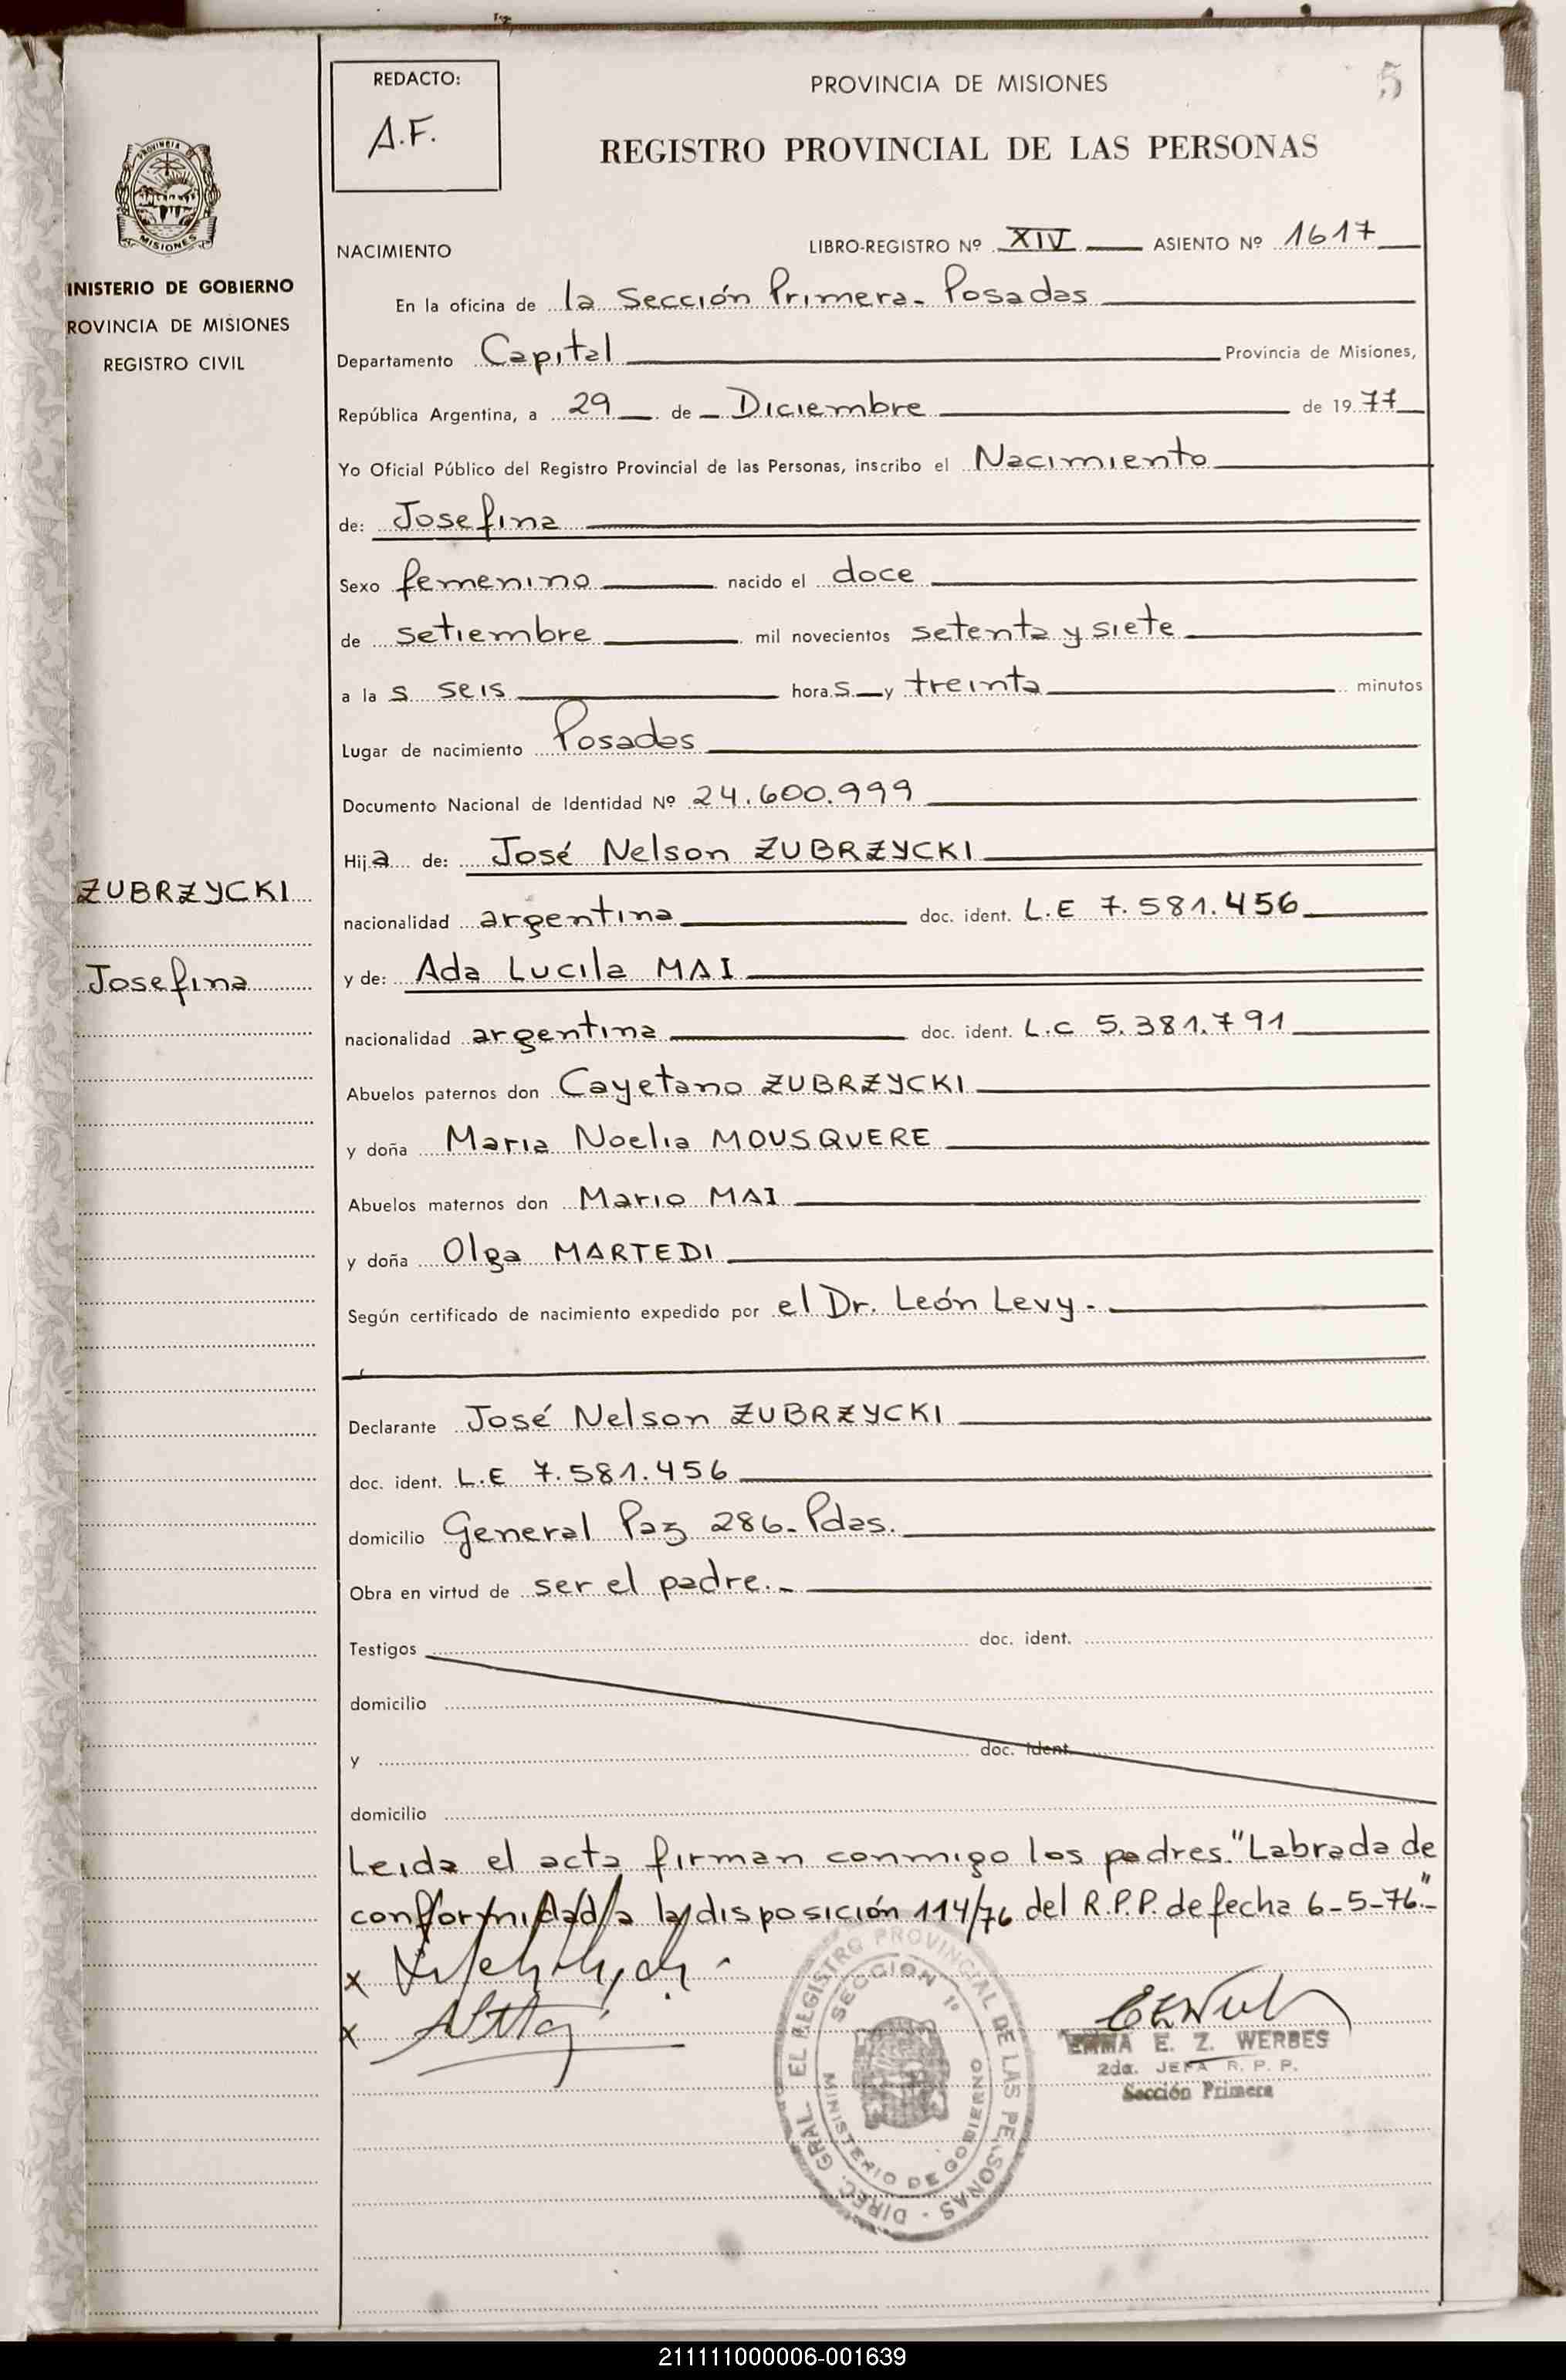 REDACTO:
A.F.
PROVINCIA DE MISIONES
5
REGISTRO PROVINCIAL DE LAS PERSONAS
PROVINCIA
MISIONES
INISTERIO DE GOBIERNO
ROVINCIA DE MISIONES
REGISTRO CIVIL
NACIMIENTO
LIBRO-REGISTRO Nº XIV ASIENTO Nº 1617
En la oficina de la Sección Primera- Posadas
Departamento Capital Provincia de Misiones,
República Argentina, a 29 de Diciembre de 1977
Yo Oficial Público del Registro Provincial de las Personas, inscribo el Nacimiento
de: Josefina
Sexo femenino nacido el doce
de setiembre mil novecientos setenta y siete
a la s seis hora s y treinta minutos
Lugar de nacimiento Posadas
Documento Nacional de Identidad Nº 24.600.999
Hija de: José Nelson ZUBRZYCKI
ZUBRZYCKI
nacionalidad argentina doc. ident. L.E 7.581.456
Josefina
y de: Ada Lucila MAI
nacionalidad argentina doc. ident. L.C 5.381.791
Abuelos paternos don Cayetano ZUBRZYCKI
y doña Maria Noelia MOUSQUERE
Abuelos maternos don Mario MAI
y doña Olga MARTEDI
Según certificado de nacimiento expedido por el Dr. León Levy.
Declarante José Nelson ZUBRZYCKI
doc. ident. L.E 7.581.456
domicilio General Paz 286- Pdas.
Obra en virtud de ser el padre.-
Testigos doc. ident.
domicilio
y doc. ident.
domicilio
Leida el acta firman conmigo los padres."Labrada de
conformidad a la disposición 114/76 del R.P.P. de fecha 6-5-76"-
x
x
DIREC. GRAL. EL REGISTRO PROVINCIAL DE LAS PERSONAS -
SECCION 1º
MINISTERIO DE GOBIERNO
EMMA E. Z. WERBES
2da. JEFA R. P. P.
Sección Primera
211111000006-001639